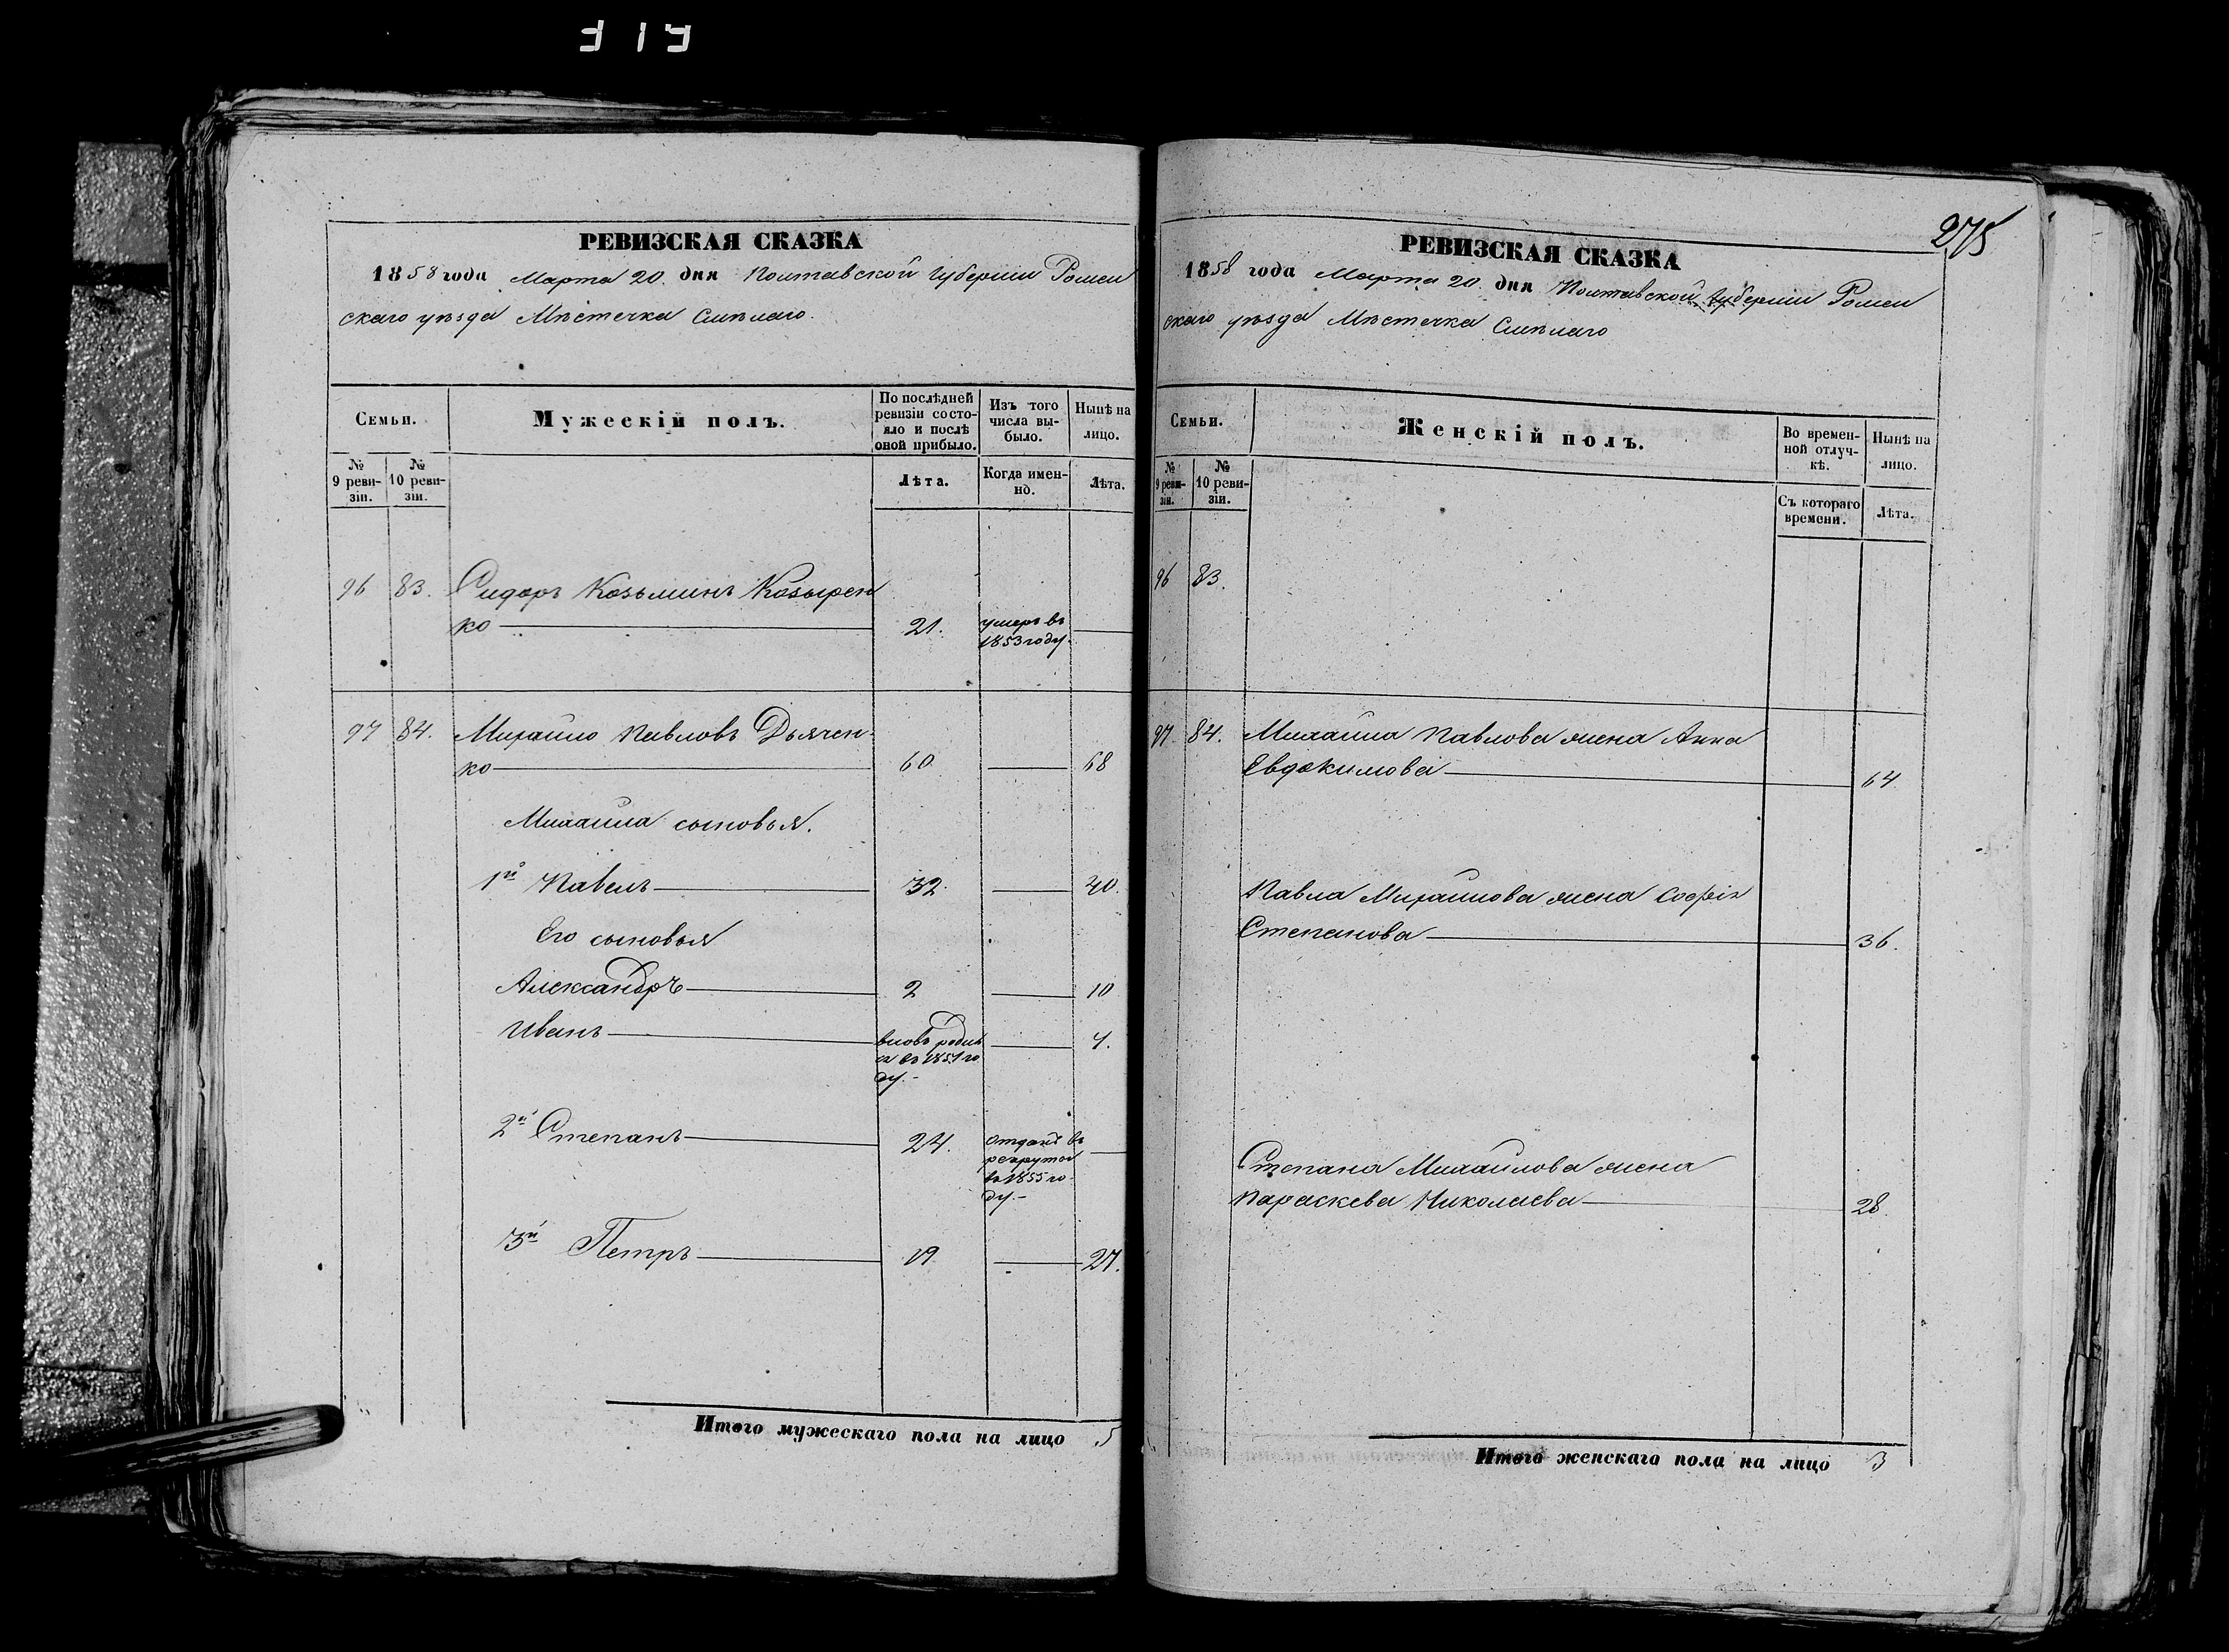 275
РЕВИЗСКАЯ СКАЗКА
1858 года Марта 20. дня Полтавской Губерніи Ромен
скаго уѣзда Мѣстечка Смѣлаго.
Семьи.
Мужескій полъ.
По послѣдней
ревизіи состо-
яло и послѣ
оной прибыло.
Изъ того
числа вы-
было.
Нынѣ на
лицо.
№
9 реви-
зіи.
№
10 реви-
зіи.
Лѣта.
Когда имен-
но.
Лѣта.
96 83. Сидоръ Козьминъ Козырен
ко 21. умеръ въ
1853 году.
97 84. Михайло Павловъ Дьячен-
ко 60. 68
Михаила сыновья.
1й Павелъ 32. 40.
Его сыновья
Александръ 2 10
Иванъ вновь родил
ся въ 1851 го
ду.- 7.
2й Степанъ 24. отданъ въ
рекруты
въ 1855 го
ду.-
3й Петръ 19 27.
Итого мужескаго пола на лицо 5
РЕВИЗСКАЯ СКАЗКА
1858 года Марта 20 дня Полтавской Губерніи Ромен
скаго уѣзда Мѣстечка Смѣлаго
Семьи.
Женскій полъ.
Во времен-
ной отлуч-
кѣ.
Нынѣ на
лицо.
№
9 реви-
зіи.
№
10 реви-
зіи.
Съ котораго
времени.
Лѣта.
96 83.
97. 84. Михаила Павлова жена Анна
Евдокимова 64.
Павла Михайлова жена Софія
Степанова 36.
Степана Михаилова жена
Параскева Николаева 28.
Итого женскаго пола на лицо 3